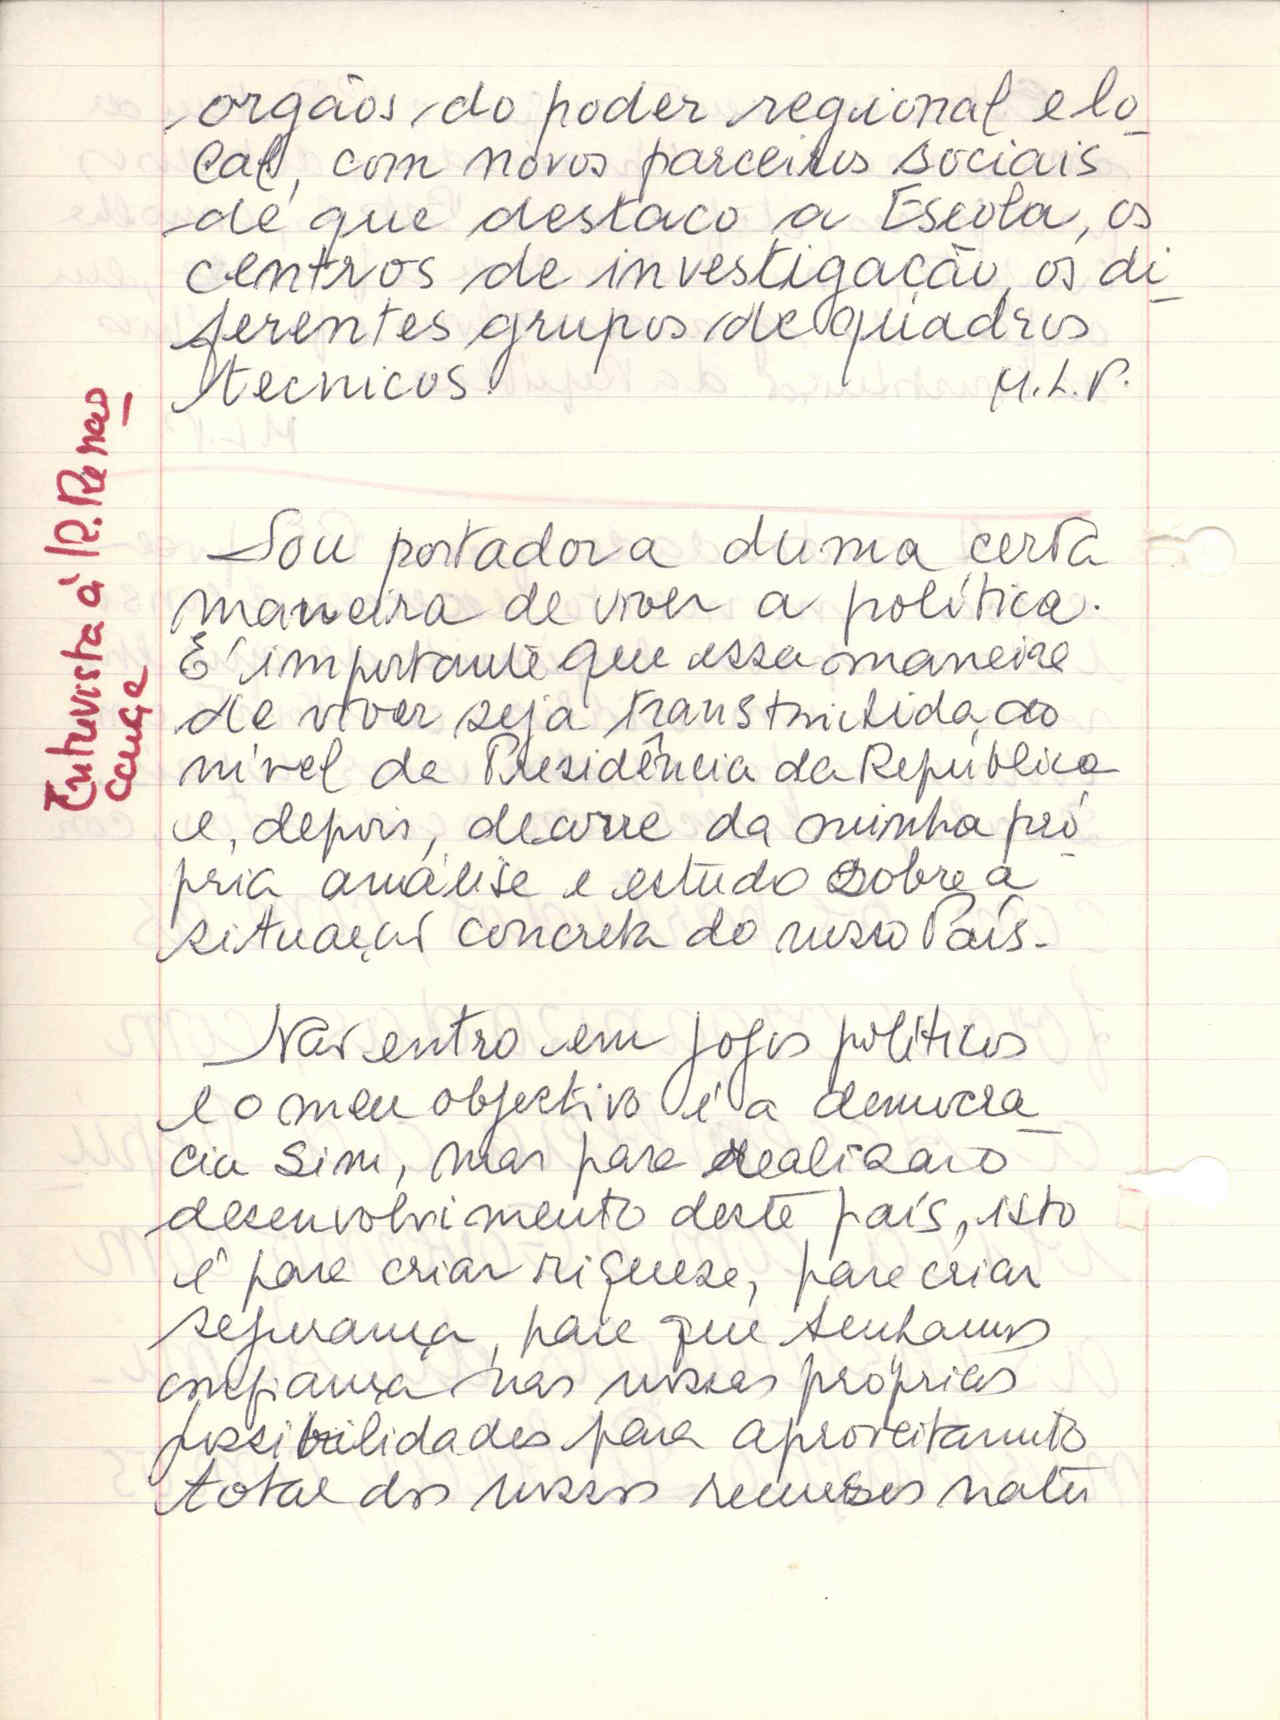 orgãos do poder regional e lo
cal, com novos parceiros sociais
de que destaco a Escola, os
centros de investigação, os di
ferentes grupos de quadros
tecnicos. M.L.P.
Entrevista à R. Renas
cença
Sou portadora duma certa
maneira de viver a política.
É importante que essa maneira
de viver seja transmitida ao
nível da Presidência da República
e, depois, decorre da minha pró
pria análise e estudo sobre a
situação concreta do nosso País.
Não entro em jogos políticos
e o meu objectivo é a democra
cia sim, mas para realizar o
desenvolvimento deste país, isto
é para criar riqueza, para criar
segurança, para que tenhamos
confiança nas nossas próprias
possibilidades para aproveitamento
total dos nossos recursos natu